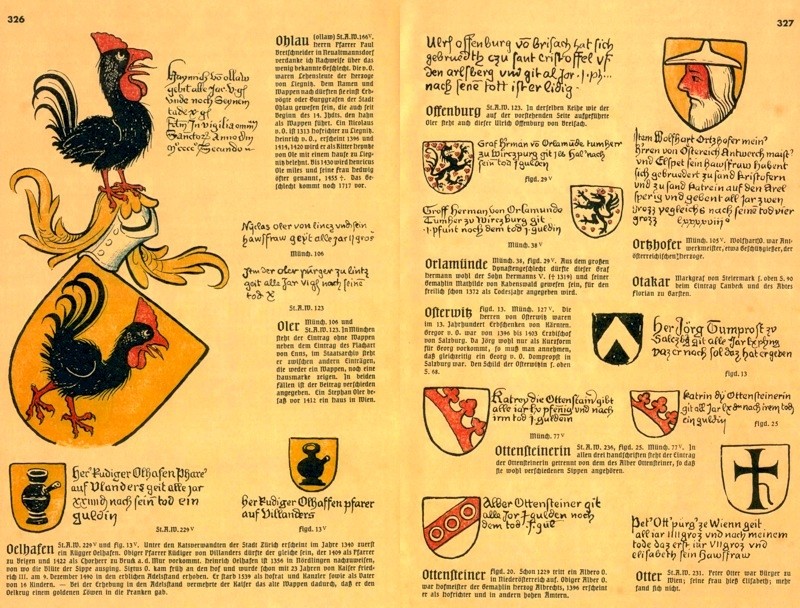 326
Haynrich vo ollaw
gebit alle Jar
vnde noch Seynem
tade
In vigilia omm
Sanctor Anno dm
Secundo
Ohlau (ollaw) St.A.W. 166ᵛ.
Herrn Pfarrer Paul
Bretschneider in Neualtmannsdorf
verdanke ich Nachweise über das
wenig bekannte Geschlecht. Die v. O.
waren Lehensleute der Herzoge
von Liegnitz. Dem Namen und
Wappen nach dürften sie einst Erb-
vögte oder Burggrafen der Stadt
Ohlau gewesen sein, die auch seit
Beginn des 14. Jhdt. den Hahn
als Wappen führt. Ein Nicolaus
v. O. ist 1313 Hofrichter zu Liegnitz.
Heinrich v. O., erscheint 1396 und
1414, 1420 wird er als Ritter Heynke
von Ole mit einem Hause zu Lieg-
nitz belehnt. Bis 1450 wird Henricus
Ole miles und seine Frau Hedwig
öfter genannt, 1455 †. Das Ge-
schlecht kommt noch 1717 vor.
Niclas oler von lincz vnd sein
hawsfraw geyt alle jar 11 gros
Münch. 106
Item der oler purger zu lintz
geit alle Jar vigh nach seine
tod x
St.A.W. 123
Oler Münch. 106 und
St.A.W. 123. In München
steht der Eintrag ohne Wappen
neben dem Eintrag des Plachart
von Enns, im Staatsarchiv steht
er zwischen andern Einträgen,
die weder ein Wappen, noch eine
Hausmarke zeigen. In beiden
Fällen ist der Beitrag verschieden
angegeben. Ein Stephan Oler be-
saß vor 1412 ein Haus in Wien.
her Rudiger Olhasen Pharer
auf Vlanders geit alle jar
xx und nach sein tod ein
guldin
St.A.W. 229ᵛ
her Rudiger Olhaffen pfarer
auf Villanders
figd. 13ᵛ
Oelhafen St.A.W. 229ᵛ und fig. 13ᵛ. Unter den Ratsverwandten der Stadt Zürich erscheint im Jahre 1340 zuerst
ein Rügger Oelhafen. Obiger Pfarrer Rüdiger von Villanders dürfte der gleiche sein, der 1409 als Pfarrer
zu Brixen und 1422 als Chorherr zu Bruck a. d. Mur vorkommt. Heinrich Oelhafen ist 1356 in Nördlingen nachzuweisen,
von wo Blüte der Sippe ausging. Sixtus O. kam früh an den Hof und wurde schon mit 23 Jahren von Kaiser Fried-
rich III. am 9. Dezember 1490 in den erblichen Adelsstand erhoben. Er starb 1539 als Hofrat und Kanzler sowie als Vater
von 16 Kindern. — Bei der Erhebung in den Adelsstand vermehrte der Kaiser das alte Wappen dadurch, daß er den
Oelkrug einem goldenen Löwen in die Pranken gab.
327
Ulrs offenburg vo brisach hat sich
gebrudth czu sant cristoffel vf
den arlsberg vnd git al Jor
nach sene tott ist er lidig
Offenburg St.A.W. 123. In derselben Reihe wie der
auf der vorstehenden Seite aufgeführte
Oler steht auch dieser Ulrich Offenburg von Breisach.
Graf hirman vo Orlamude tumherr
zu wirczpurg git hal nach
sein tod guldein
figd. 29ᵛ
Groff Herman von Orlamunde
Tumherr zu wirczburg git
pfunt noch dem tod guldin
Münch. 38ᵛ
Orlamünde Münch. 38, figd. 29ᵛ. Aus dem großen
Dynastengeschlecht dürfte dieser Graf
Hermann wohl der Sohn Hermanns V. († 1319) und seiner
Gemahlin Mathilde von Rabenswald gewesen sein, für den
freilich schon 1372 als Todesjahr angegeben wird.
Osterwitz figd. 13. Münch. 127ᵛ. Die
Herren von Osterwitz waren
im 13. Jahrhundert Erbschenken von Kärnten.
Gregor v. O. war von 1396 bis 1403 Erzbischof
von Salzburg. Da Jörg wohl nur als Kurzform
für Georg vorkommt, so muß man annehmen,
daß gleichzeitig ein Georg v. O. Dompropst in
Salzburg war. Den Schild der Osterwitzen s. oben
S. 68.
Katrey die Ottenstain gibt
alle iar xv pfenig vnd nach
irm tod guldin
Münch. 77ᵛ
Ottensteinerin St.A.W. 236, figd. 25. Münch. 77ᵛ. In
allen drei Handschriften steht der Eintrag
der Ottensteinerin getrennt von dem des Alber Ottensteiner, so daß
sie wohl verschiedenen Sippen angehören.
Alber Ottensteiner git
alle Jar guldin noch
dem tod gul
Ottensteiner figd. 20. Schon 1229 tritt ein Albero O.
in Niederösterreich auf. Obiger Alber O.
war Hofmeister der Gemahlin Herzog Albrechts, 1396 erscheint
er als Hofrichter und in andern hohen Ämtern.
Item Wolfhart Ortzhofer mein
hrren von Osterrich Antwerch maist
vnd Elspet sein hawsfraw habent
sich gebruedert zu sand kristofern
vnd zu sand katrein auf den Arel
sperig vnd gebent all jar zwen
grozz yegleichs nach seine tod vier
grozz
Ortzhofer Münch. 105ᵛ. Wolfhart O. war Ant-
werkmeister, etwa Geschützmeister, der
österreichischen Herzoge.
Otakar Markgraf von Steiermark s. oben S. 90
beim Eintrag Lambeck und des Abtes
Florian zu Garsten.
Her Jörg Tumprost zu
Salczbg git alle Jar
Daz er nach sol daz hat er geben
figd. 13
katrin dy Ottensteinerin
git all Jar nach irem tod
ein guldin
figd. 25
Pet Ott purg ze Wienn geit
all iar IIII groz vnd nach meinem
tode daz erst iar VII groz vnd
elisabeth sein hawsfraw
Otter St.A.W. 231. Peter Otter war Bürger zu
Wien; seine Frau hieß Elisabeth; mehr
fand sich nicht.